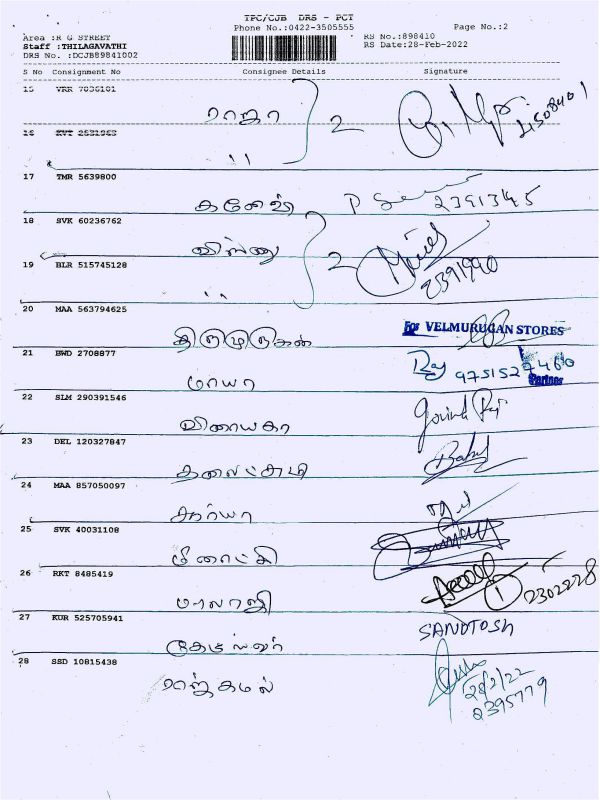 TPC/CJB DRS - PCT
Phone No.:0422-3505555 Page No.:2
Area :R G STREET RS No.:898410
Staff :THILAGAVATHI RS Date:28-Feb-2022
DRS No. :DCJB89841002
S No Consignment No Consignee Details Signature
15 VRR 7036101
ராஜா 2 4508401
16 KVT 2631363
"
17 TMR 5639800
கணேஷ் 2391345
18 SVK 60236762
விஸ்ணு 2 2391990
19 BLR 515745128
"
20 MAA 563794625
திருமுருகன் For VELMURUGAN STORES
21 BWD 2708877
மாயா 9751527460 Partner
22 SLM 290391546
விநாயகா Govind Raj
23 DEL 120327847
Babu
24 MAA 857050097
சூர்யா
25 SVK 40031108
மீனாட்சி
26 RKT 8485419
பாலாஜி 2302228
27 KUR 525705941
SANOTOSH
28 SSD 10815438
ராஜ்கமல் 28/2/22
2395779